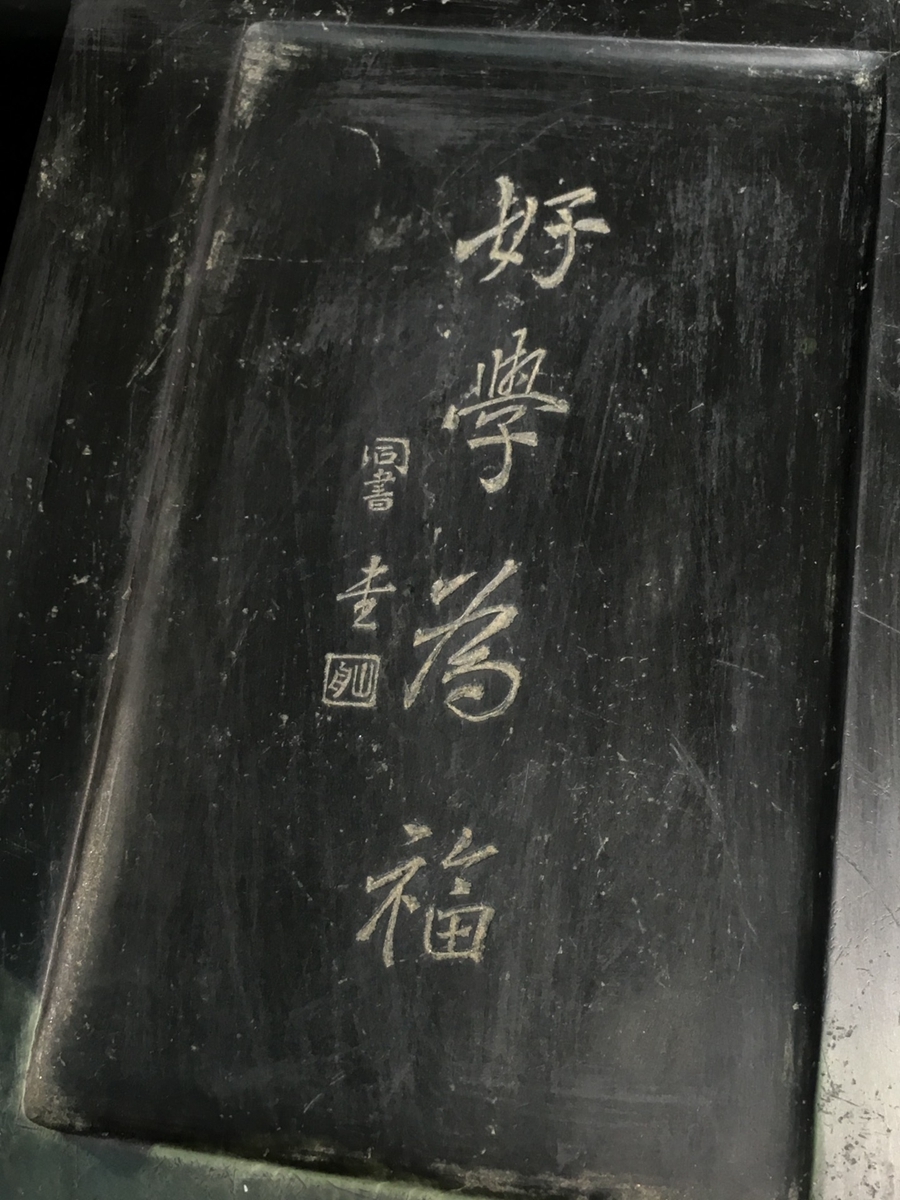 好學為福
同書